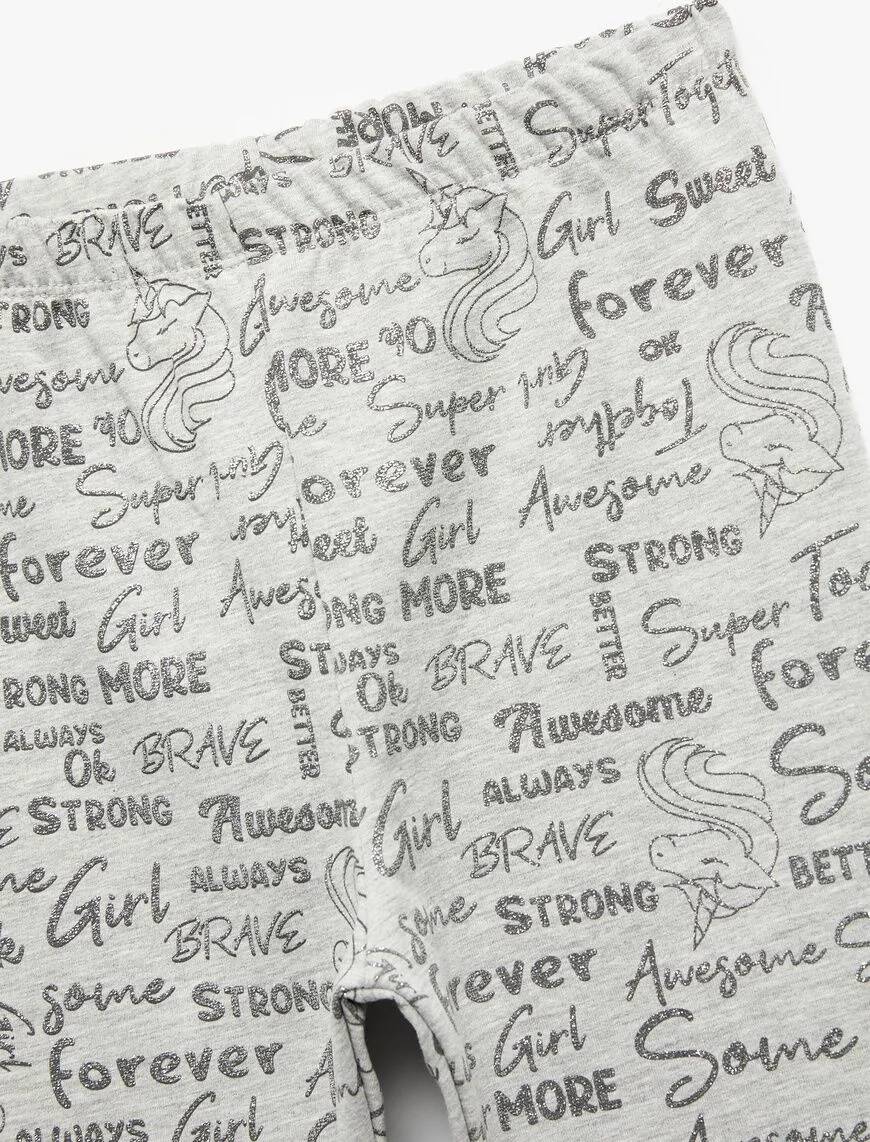 MORE BRAVE BETTER Super Toget
BRAVE BETTER STRONG Girl Sweet
STRONG Awesome forever
MORE OK
Super Girl Together
forever Awesome
Girl STRONG
MORE BETTER Super Tog
BRAVE
Ok
STRONG Awesome
Girl ALWAYS
BRAVE
some STRONG BETT
Awesome
Girl Some
MORE
Awesome
MORE
Super Girl
forever
Girl
MORE
ALWAYS
Ok BRAVE BETTER
STRONG Awesome
Girl ALWAYS
BRAVE
some STRONG
forever
ALWAYS Girl